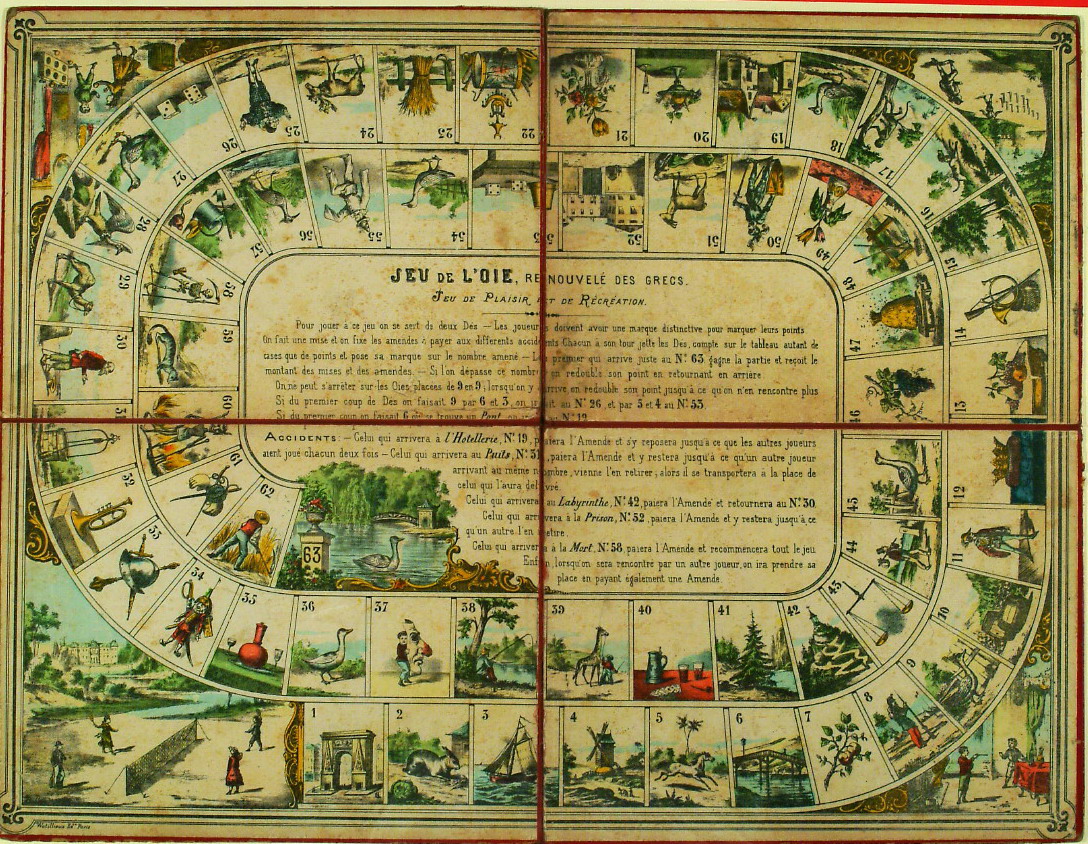 JEU DE L'OIE, RENOUVELÉ DES GRECS.
JEU DE PLAISIR ET DE RÉCRÉATION.
Pour jouer à ce jeu on se sert de deux Dés — Les joueurs doivent avoir une marque distinctive pour marquer leurs points
On fait une mise et on fixe les amendes à payer aux différents accidents Chacun à son tour jette les Dés, compte sur le tableau autant de
cases que de points et pose sa marque sur le nombre amené — Le premier qui arrive juste au N° 63 gagne la partie et reçoit le
montant des mises et des amendes. — Si l'on dépasse ce nombre on redouble son point en retournant en arrière.
On ne peut s'arrêter sur les Oies placées de 9 en 9; lorsqu'on y arrive on redouble son point jusqu'à ce qu'on n'en rencontre plus
Si du premier coup de Dés on faisait 9 par 6 et 3, on irait au N° 26, et par 5 et 4 au N° 53.
Si du premier coup on faisait 6 où se trouve un Pont, on irait au N° 12
ACCIDENTS: — Celui qui arrivera à l'Hotellerie, N° 19, paiera l'Amende et s'y reposera jusqu'à ce que les autres joueurs
aient joué chacun deux fois — Celui qui arrivera au Puits, N° 31, paiera l'Amende et y restera jusqu'à ce qu'un autre joueur
arrivant au même nombre, vienne l'en retirer, alors il se transportera à la place de
celui qui l'aura délivré.
Celui qui arrivera au Labyrinthe, N° 42, paiera l'Amende et retournera au N° 30.
Celui qui arrivera à la Prison, N° 52, paiera l'Amende et y restera jusqu'à ce
qu'un autre l'en retire.
Celui qui arrivera à la Mort, N° 58, paiera l'Amende et recommencera tout le jeu
Enfin, lorsqu'on sera rencontré par un autre joueur, on ira prendre sa
place en payant également une Amende.
1
2
3
4
5
6
7
8
9
10
11
12
13
14
16
17
18
19
20
21
22
23
24
25
26
27
28
29
30
31
32
33
34
35
36
37
38
39
40
41
42
43
44
45
46
47
48
49
50
51
52
53
54
55
56
57
58
59
60
61
62
63